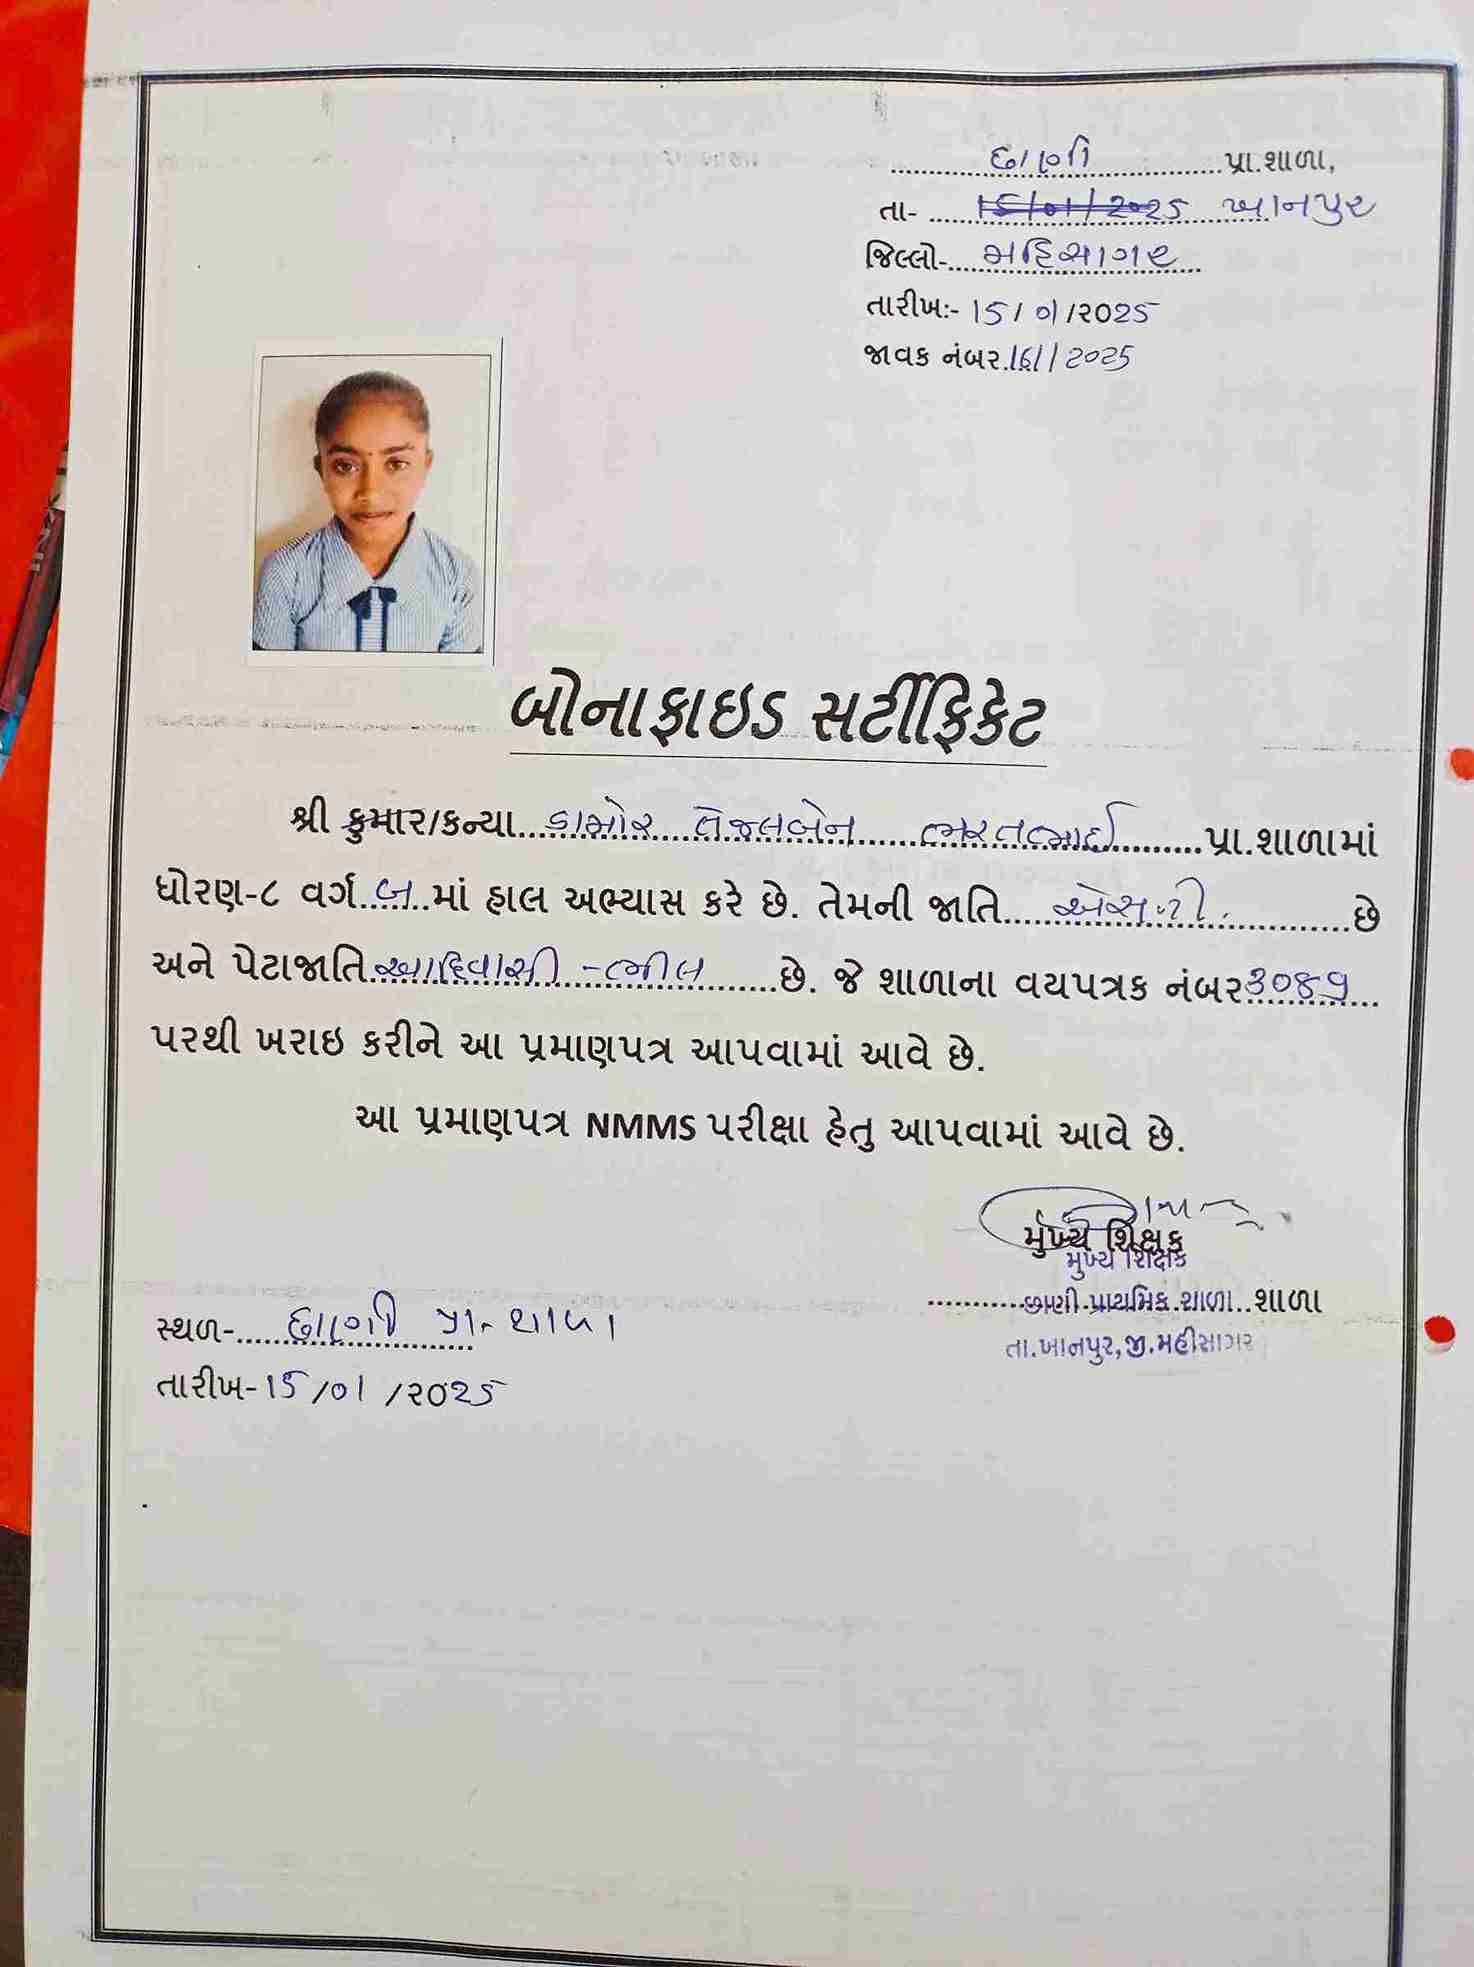 છાણી પ્રા.શાળા,
તા- 15/01/2025 ખાનપુર
જિલ્લો- મહિસાગર
તારીખ:- 15/01/2025
જાવક નંબર. 161/2025
બોનાફાઇડ સર્ટીફિકેટ
શ્રી કુમાર/કન્યા ડામોર તેજલબેન ભરતભાઈ પ્રા.શાળામાં
ધોરણ-૮ વર્ગ બ માં હાલ અભ્યાસ કરે છે. તેમની જાતિ એસ.ટી. છે
અને પેટાજાતિ આદિવાસી - ભીલ છે. જે શાળાના વયપત્રક નંબર ૩૦૪૧
પરથી ખરાઇ કરીને આ પ્રમાણપત્ર આપવામાં આવે છે.
આ પ્રમાણપત્ર NMMS પરીક્ષા હેતુ આપવામાં આવે છે.
મુખ્ય શિક્ષક
મુખ્ય શિક્ષક
છાણી પ્રાથમિક શાળા શાળા
તા.ખાનપુર,જી.મહીસાગર
સ્થળ- છાણી પ્રા. શાળા
તારીખ- 15/01/૨૦૨5